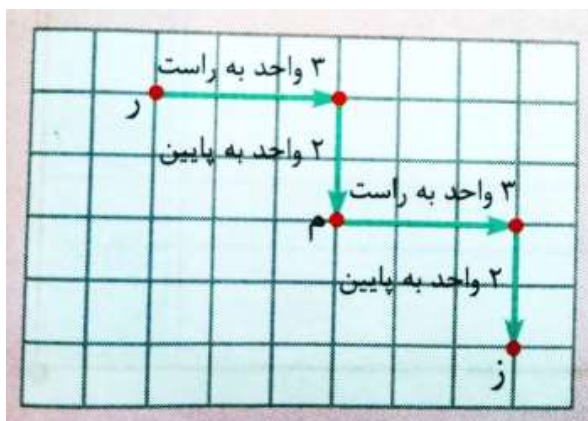 ۳ واحد به راست
ر
۲ واحد به پایین
۳ واحد به راست
م
۲ واحد به پایین
ز